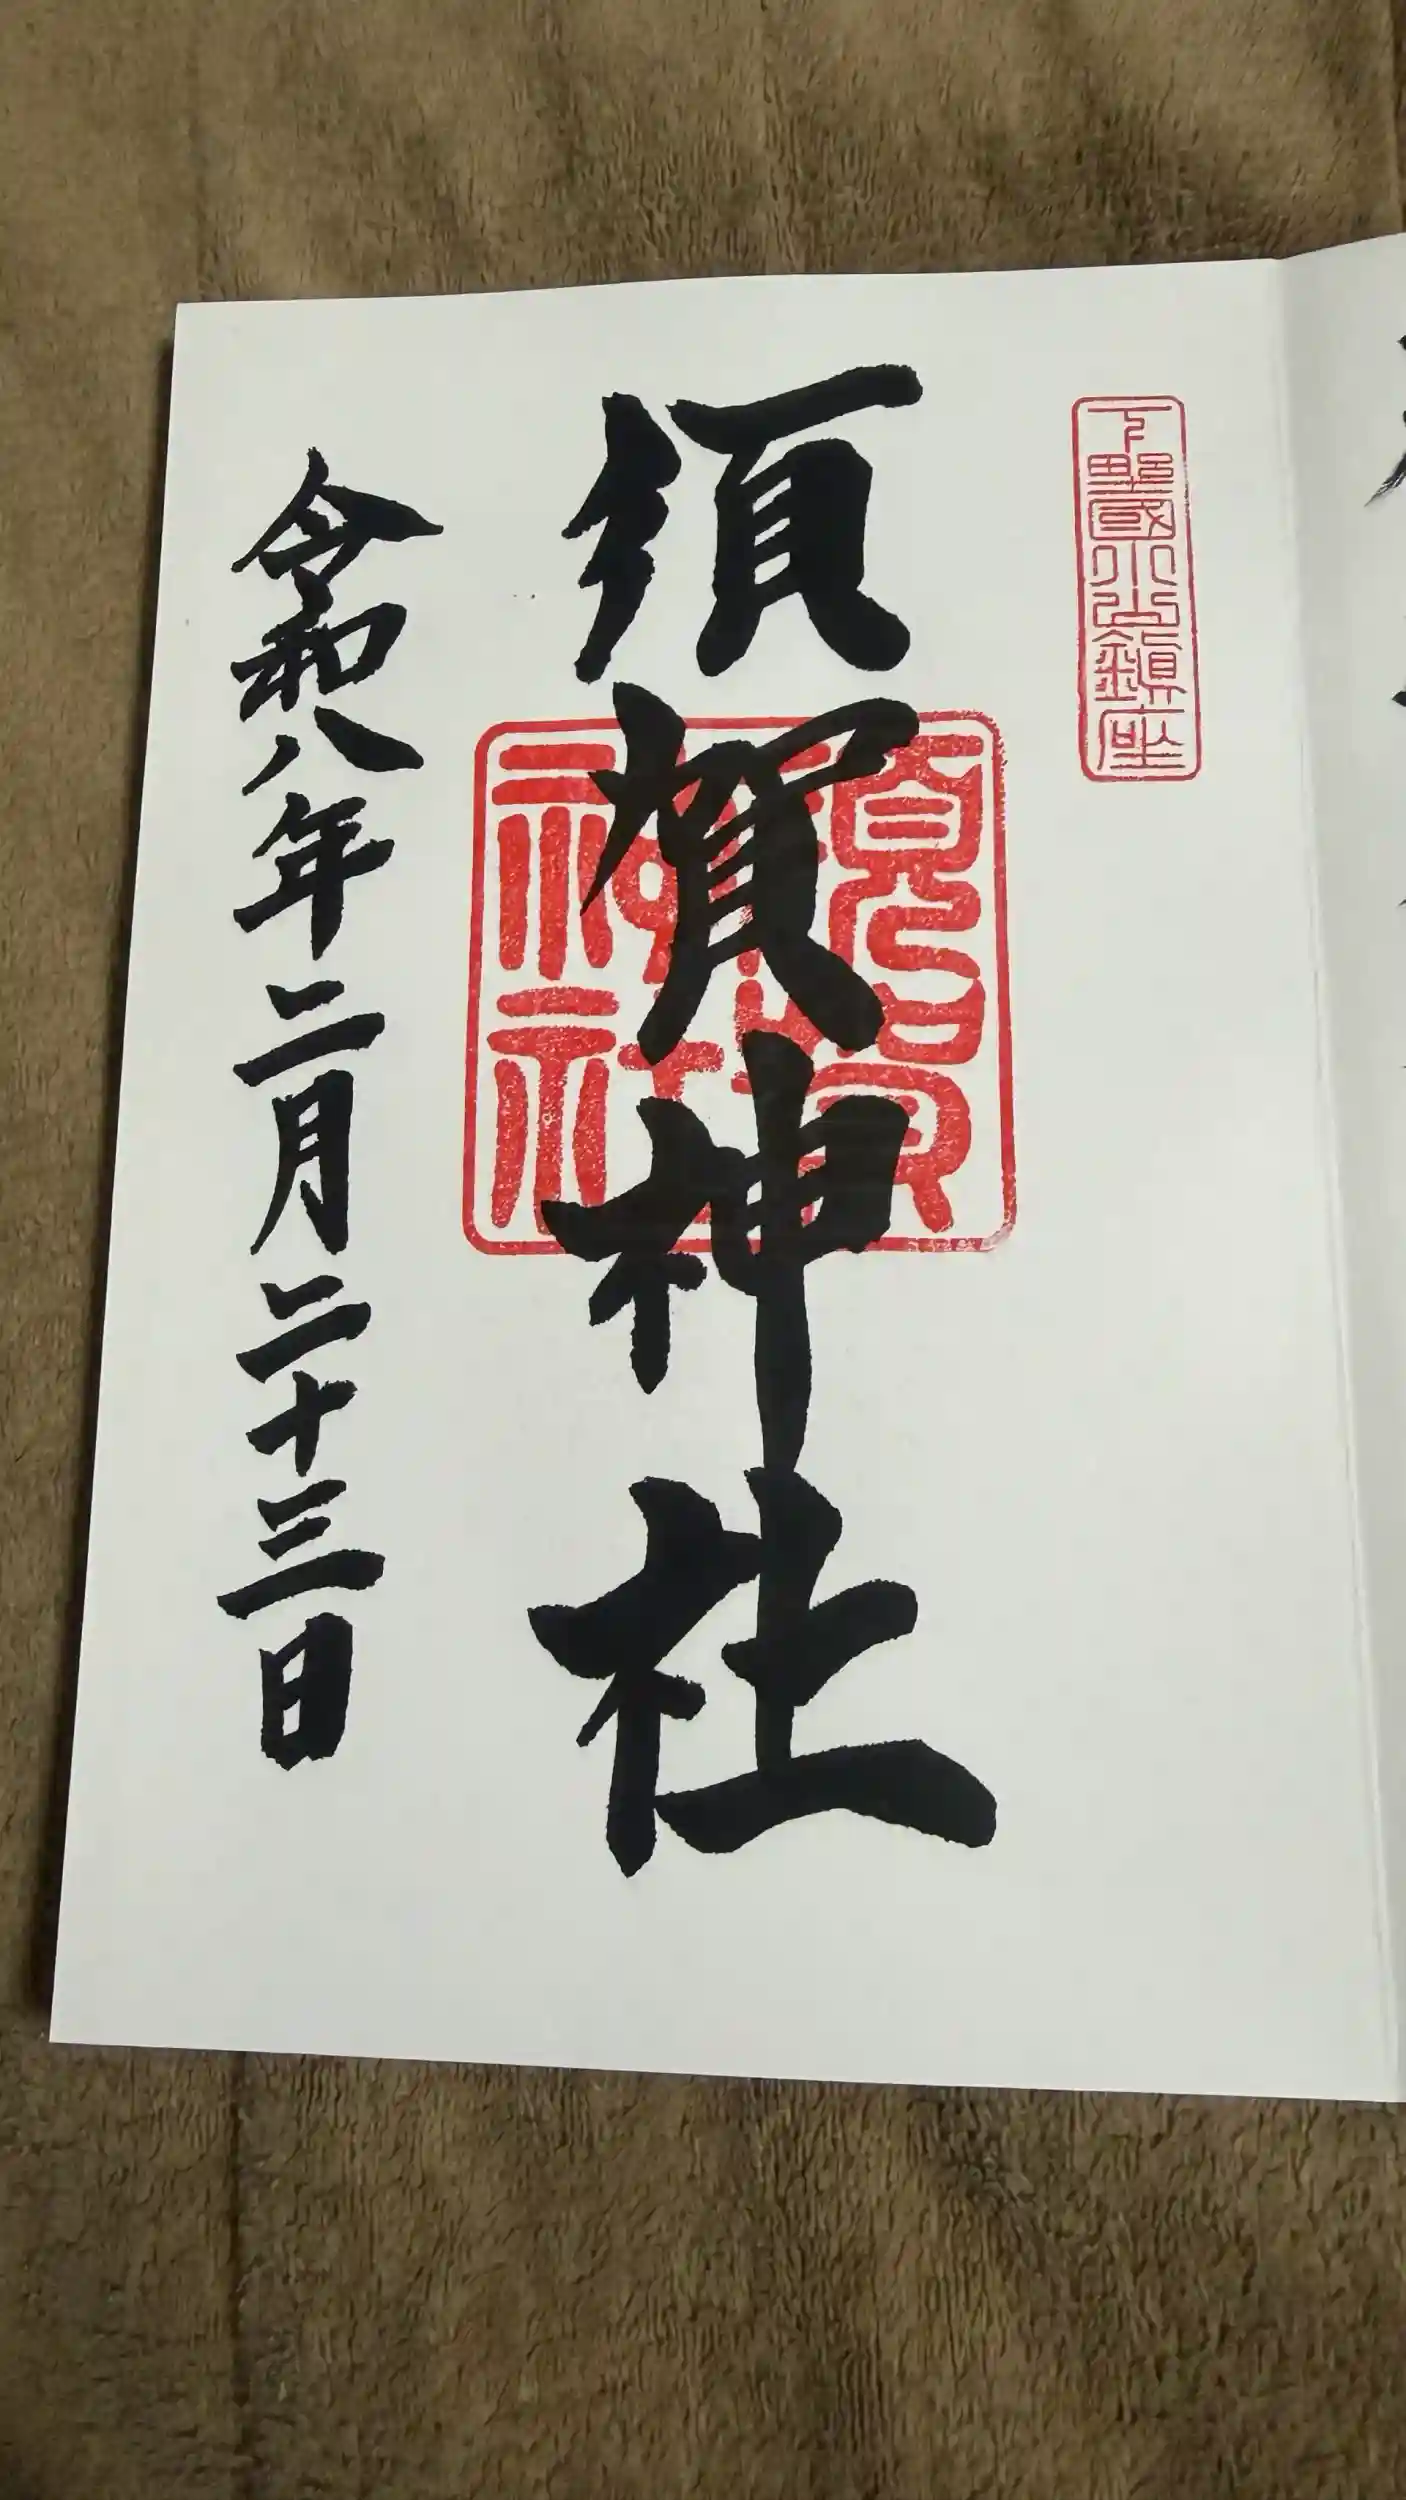 下野國小山鎮座
須賀神社
須賀
神社
令和八年二月二十三日